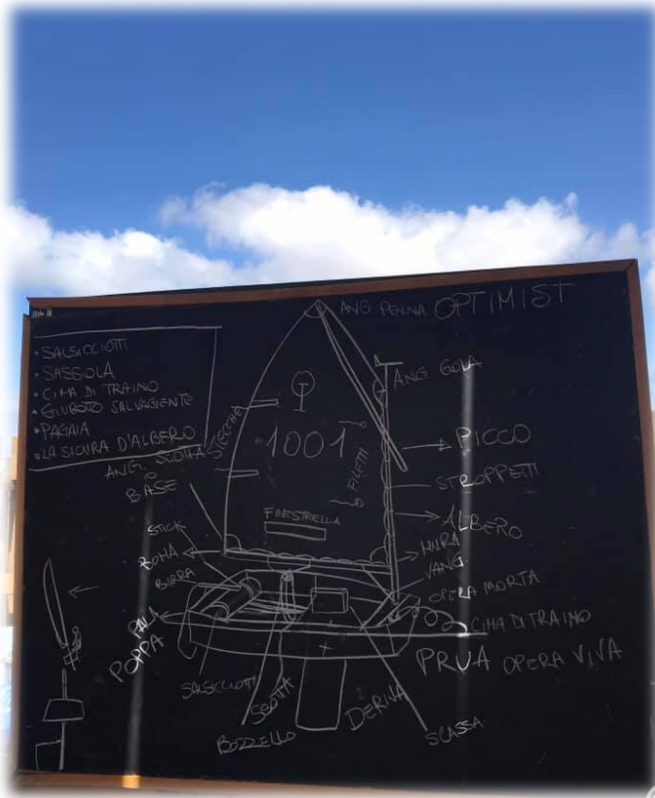 ANG. PENNA OPTIMIST
• SALSICCIOTTI
• SASSOLA
• CIMA DI TRAINO
• GIUBOTO SALVAGENTE
• PAGAIA
• LA SICURA D'ALBERO
ANG. GOLA
PICCO
STROPPETTI
ALBERO
MURA
VANG
OPERA MORTA
CIMA DI TRAINO
PRUA OPERA VIVA
STECCHE
1001
FILETTI
FINESTRELLA
ANG. SCOTTA
BASE
STICK
BOMA
BARRA
PALA
POPPA
SALSICCIOTTI
SCOTTA
BOZZELLO
DERIVA
SCASSA